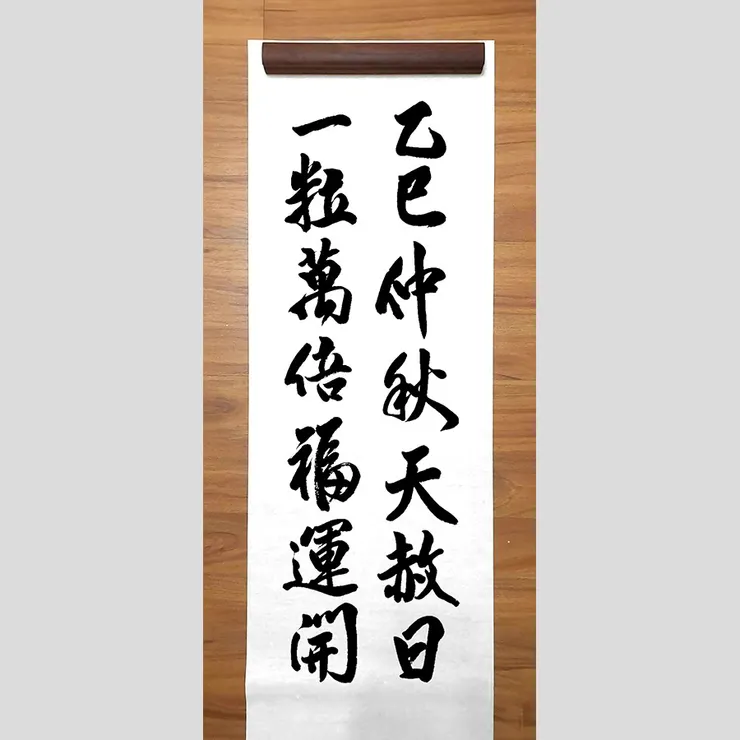 乙巳仲秋天赦日
一粒萬倍福運開